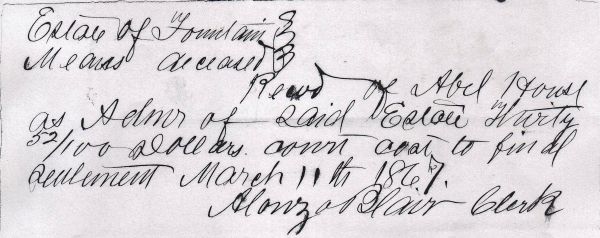 Estate of Fountain
Means deceased
Recd of Abel House
as Admr of said Estate Thirty
52/100 Dollars court cost to final
settlement March 11th 1867.
Alonzo Blair Clerk